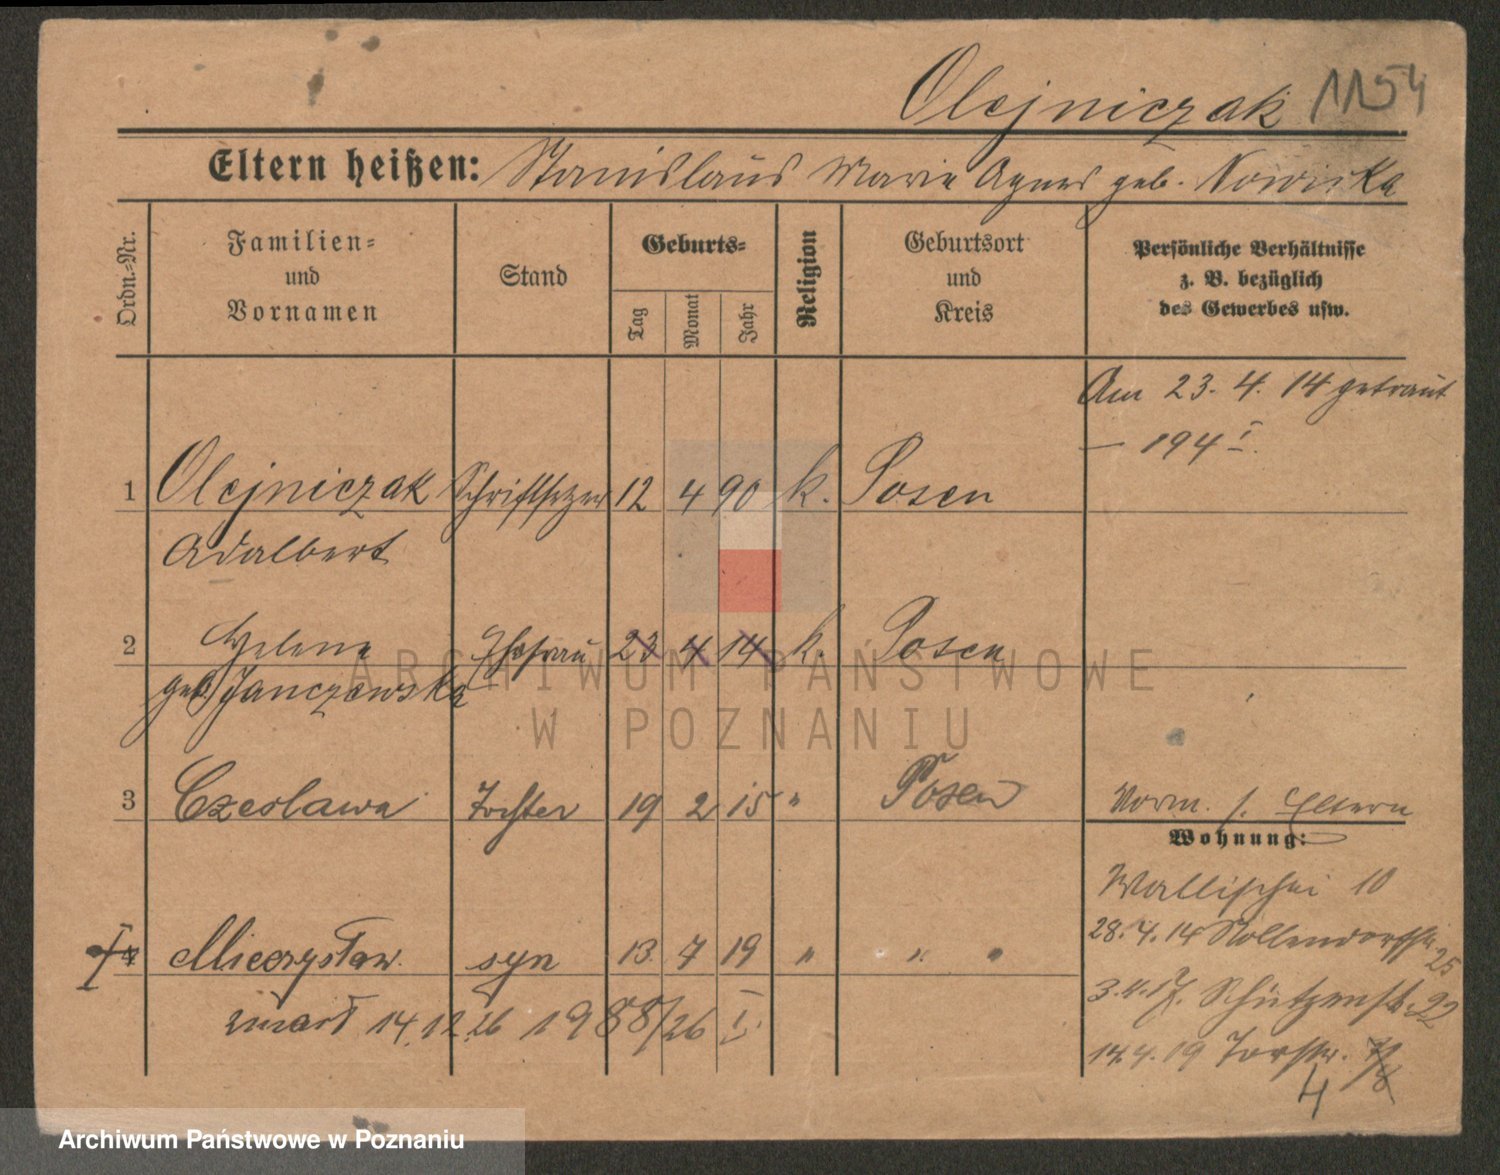 Olejniczak 1154
Eltern heißen: Stanislaus Marie Agnes geb. Nowicka
Ordn.-Nr.
Familien-
und
Vornamen
Stand
Geburts-
Tag
Monat
Jahr
Religion
Geburtsort
und
Kreis
Persönliche Verhältnisse
z. B. bezüglich
des Gewerbes usw.
Am 23. 4. 14 getraut
— 194 I.
1 Olejniczak Schriftsetzer 12 4 90 k. Posen
Adalbert
2 Helene Ehefrau 23 4 14 k. Posen
geb. Janczewska
3 Czeslawa Tochter 19 2 15 " Posen
Vorm. s. Eltern
Wohnung:
Wallischei 10
28. 4. 14 Nollendorfstr. 25
4 Mieczysław. syn 13 7 19 " " "
3. 4. 17. Schützenstr. 22
zmarł 14.12.26 1988/26 I.
14. 4. 19 Torstr.
4
ARCHIWUM PAŃSTWOWE
W POZNANIU
Archiwum Państwowe w Poznaniu